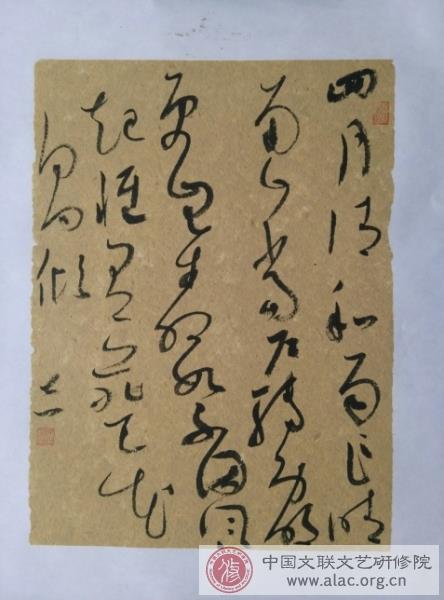 四月清和雨乍晴
南山當戶轉分明
更無柳絮因風
起惟有葵花
向日傾
中国文联文艺研修院
www.alac.org.cn